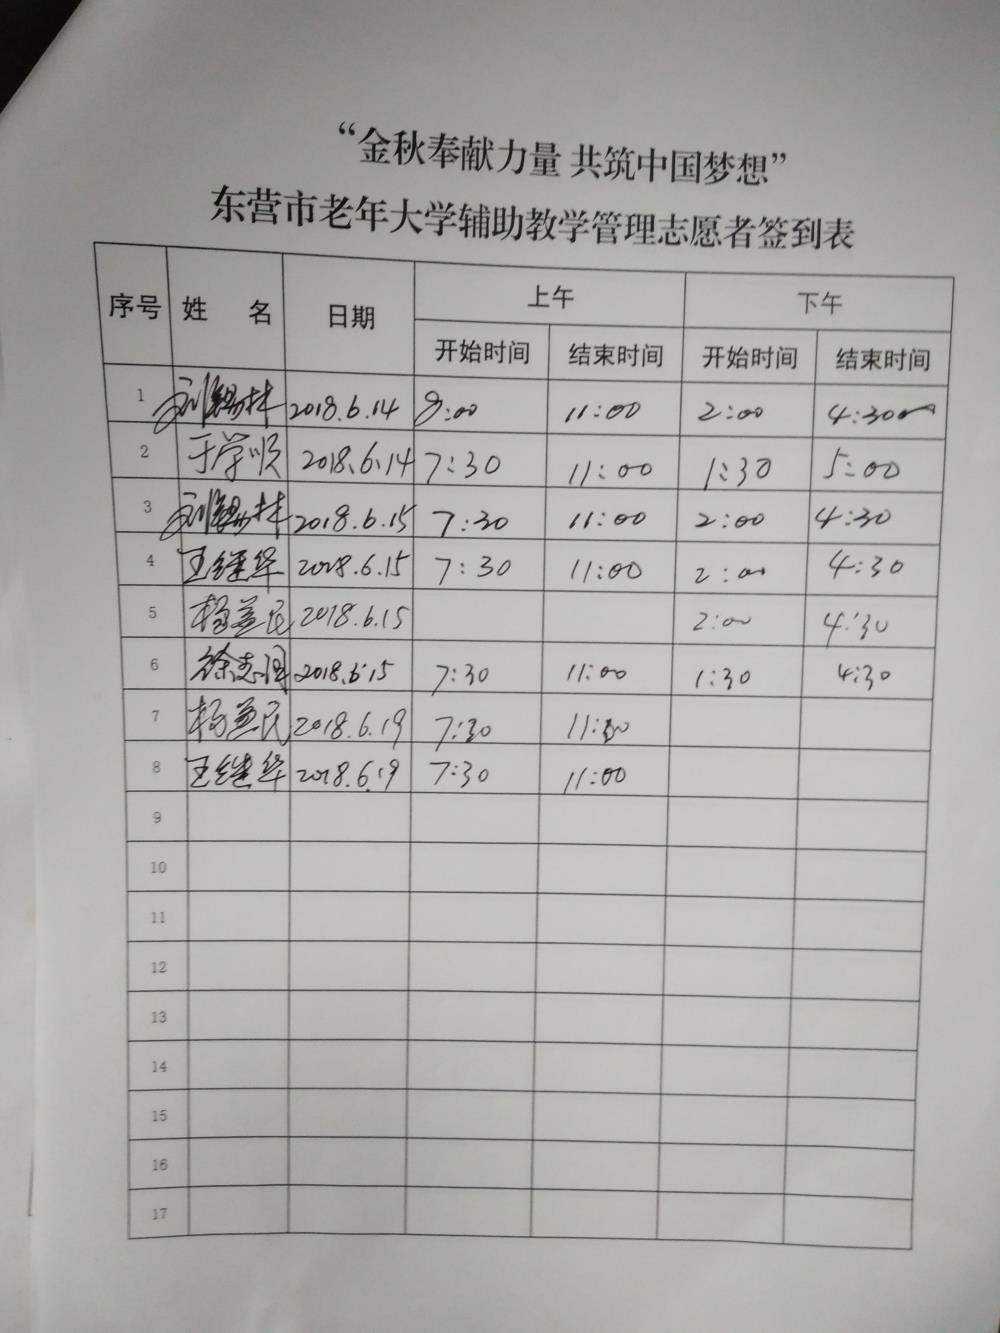 “金秋奉献力量 共筑中国梦想”
东营市老年大学辅助教学管理志愿者签到表
序号 姓 名 日期 上午 下午
开始时间 结束时间 开始时间 结束时间
1 刘锡林 2018.6.14 8:00 11:00 2:00 4:30
2 于学顺 2018.6.14 7:30 11:00 1:30 5:00
3 刘锡林 2018.6.15 7:30 11:00 2:00 4:30
4 王继华 2018.6.15 7:30 11:00 2:00 4:30
5 杨益民 2018.6.15 2:00 4:30
6 徐志 2018.6.15 7:30 11:00 1:30 4:30
7 杨益民 2018.6.19 7:30 11:30
8 王继华 2018.6.19 7:30 11:00
9
10
11
12
13
14
15
16
17